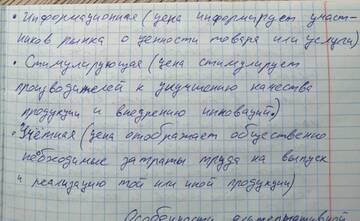 • Информационная (цена информирует участ-
ников рынка о ценности товара или услуги)
• Стимулирующая (цена стимулирует
производителей к улучшению качества
продукции и внедрению инноваций.)
• Учётная (цена отображает общественно
необходимые затраты труда на выпуск
и реализацию той или иной продукции)
Особенности